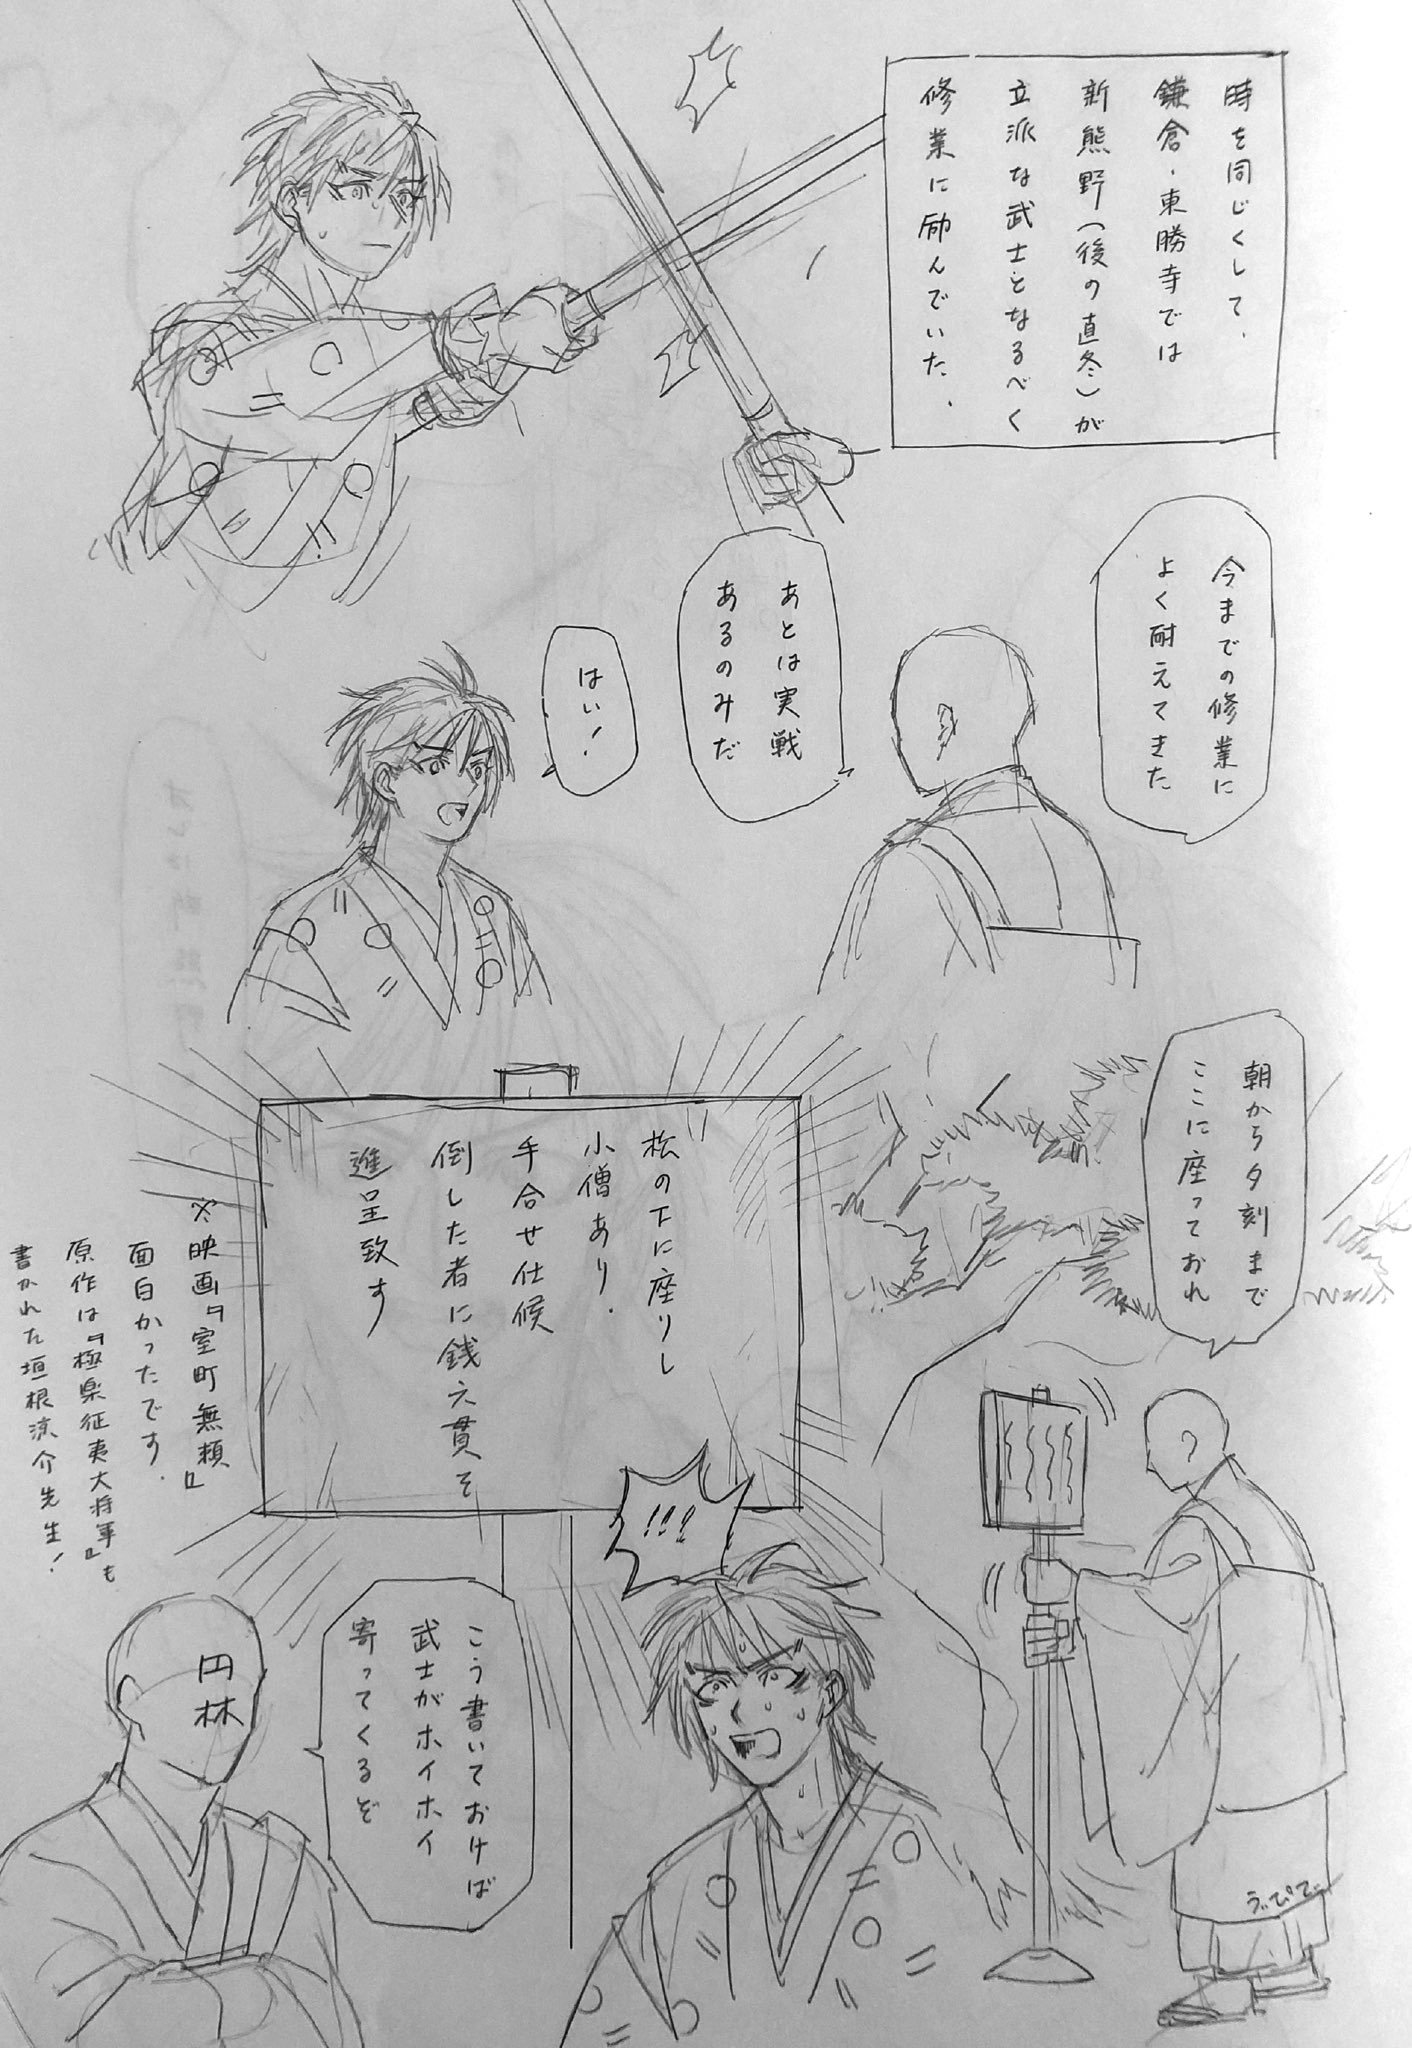 時を同じくして、
鎌倉・東勝寺では
新熊野（後の直冬）が
立派な武士となるべく
修業に励んでいた。
今までの修業に
よく耐えてきた
あとは実戦
あるのみだ
はい！
朝から夕刻まで
ここに座っておれ
松の下に座りし
小僧あり。
手合せ仕候
倒した者に銭六貫を
進呈致す
※映画『室町無頼』
面白かったです。
原作は『極楽征夷大将軍』も
書かれた垣根涼介先生！
!!?
こう書いておけば
武士がホイホイ
寄ってくるぞ
円林